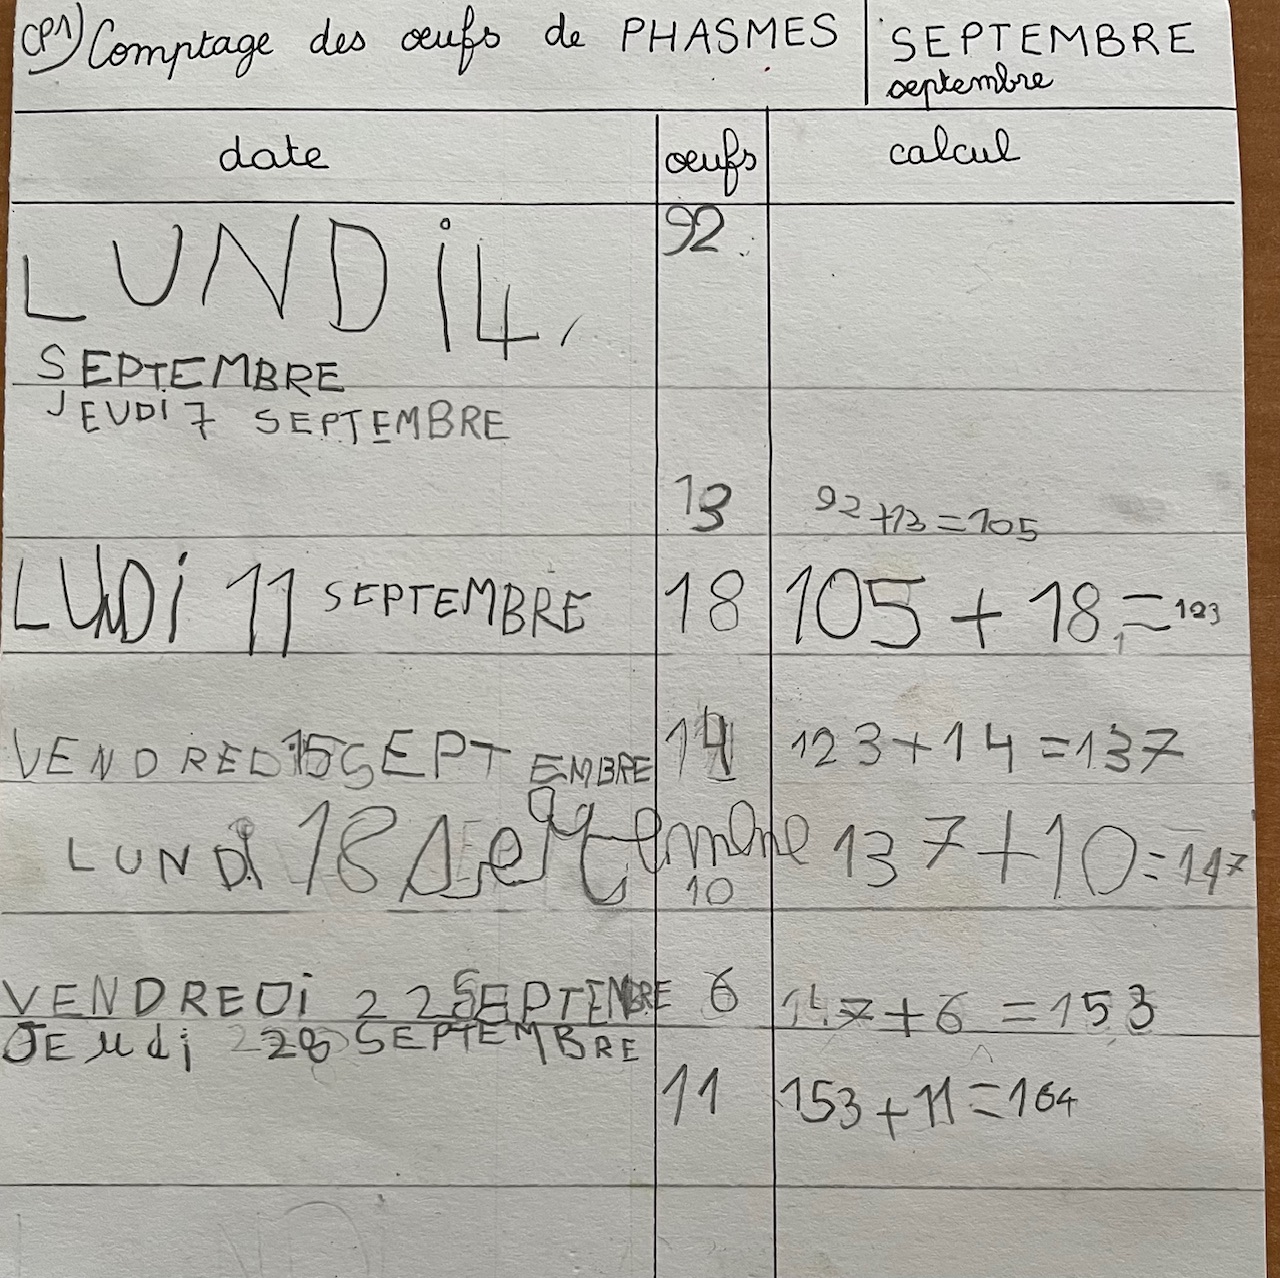 CP1) Comptage des œufs de PHASMES | SEPTEMBRE
septembre
date œufs calcul
LUNDi 4 92
SEPTEMBRE
JEUDI 7 SEPTEMBRE
13 92+13=105
LUDi 11 SEPTEMBRE 18 105+18=123
VENDREDI 15 SEPTEMBRE 14 123+14=137
LUNDi 18 septembre 10 137+10=147
VENDREDi 22 SEPTENBRE 6 147+6=153
JEudi 28 SEPTEMBRE
11 153+11=164